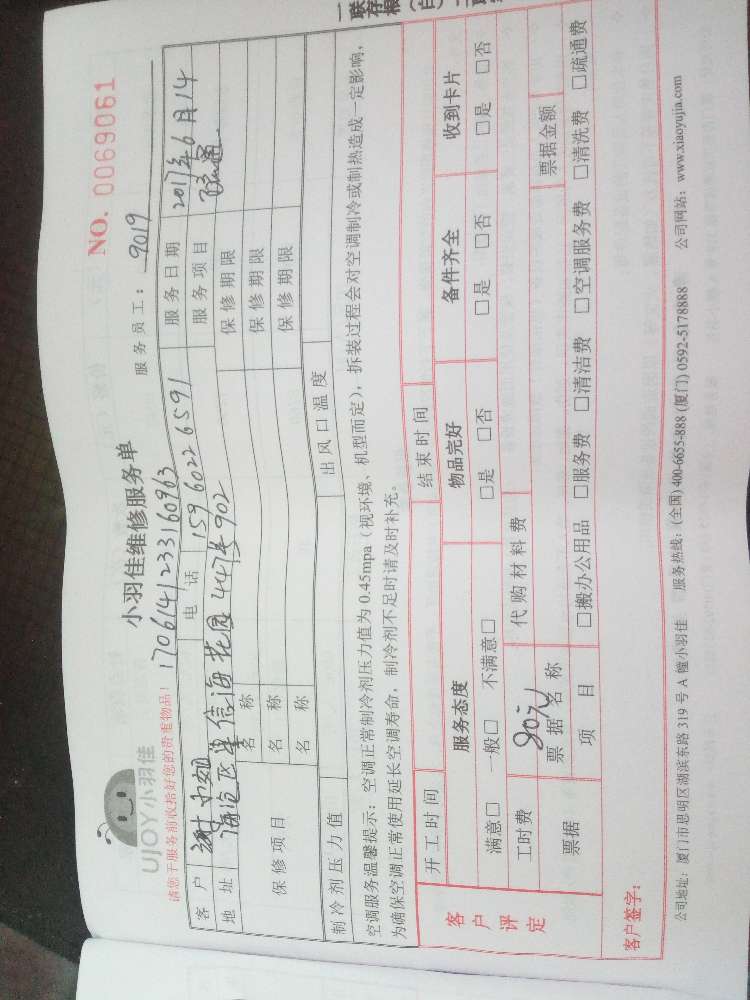 一联
存根（白）
UJOY小羽佳
小羽佳维修服务单
NO. 0069061
1706141233160963
服务员工：9019
请您于服务前收拾好您的贵重物品！
客户 谢小姐 电话 159 6022 6591 服务日期 2017年6月14
地址 海沧区 信海花园 44号902 服务项目
保修项目 名称 保修期限
名称 保修期限
名称 保修期限
制冷剂压力值 出风口温度
空调服务温馨提示：空调正常制冷剂压力值为 0.45mpa（视环境、机型而定），拆装过程会对空调制冷或制热造成一定影响，
为确保空调正常使用延长空调寿命，制冷剂不足时请及时补充。
客户评定 开工时间 结束时间
服务态度 物品完好 备件齐全 收到卡片
满意□ 一般□ 不满意□ □是 □否 □是 □否 □是 □否
工时费 80元 代购材料费
票据 票据名称 票据金额
项目 □搬办公用品 □服务费 □清洁费 □空调服务费 □清洗费 □疏通费
客户签字：
公司地址：厦门市思明区湖滨东路 319 号 A 幢小羽佳 服务热线：(全国) 400-6655-888 (厦门) 0592-5178888 公司网站：www.xiaoyujia.com